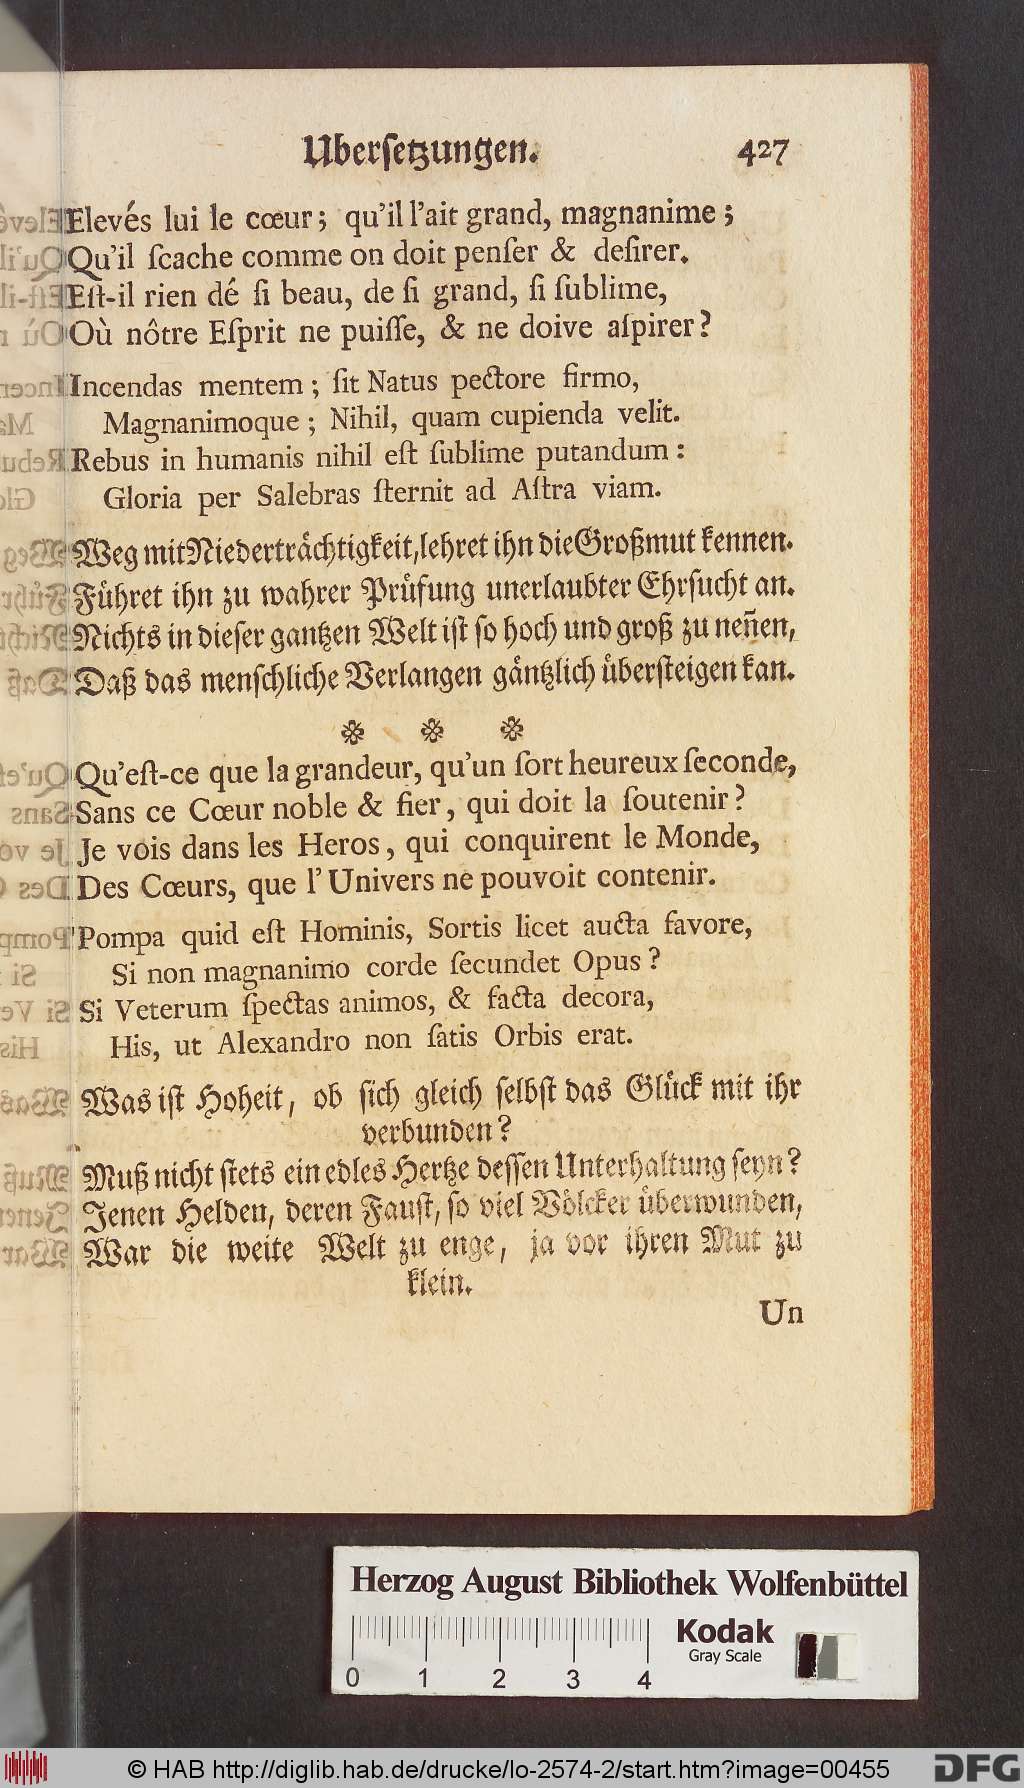 Ubersetzungen. 427
Elevés lui le cœur; qu'il l'ait grand, magnanime;
Qu'il ſcache comme on doit penſer & deſirer.
Eſt-il rien dé ſi beau, de ſi grand, ſi ſublime,
Où nôtre Eſprit ne puiſſe, & ne doive aſpirer?
Incendas mentem; ſit Natus pectore firmo,
Magnanimoque; Nihil, quam cupienda velit.
Rebus in humanis nihil eſt ſublime putandum:
Gloria per Salebras ſternit ad Aſtra viam.
Weg mit Niederträchtigkeit, lehret ihn die Großmut kennen.
Führet ihn zu wahrer Prüfung unerlaubter Ehrſucht an.
Nichts in dieſer gantzen Welt iſt ſo hoch und groß zu neñen,
Daß das menſchliche Verlangen gäntzlich überſteigen kan.
Qu'eſt-ce que la grandeur, qu'un ſort heureux ſeconde,
Sans ce Cœur noble & fier, qui doit la ſoutenir?
Je vois dans les Heros, qui conquirent le Monde,
Des Cœurs, que l'Univers ne pouvoit contenir.
Pompa quid eſt Hominis, Sortis licet aucta favore,
Si non magnanimo corde ſecundet Opus?
Si Veterum ſpectas animos, & facta decora,
His, ut Alexandro non ſatis Orbis erat.
Was iſt Hoheit, ob ſich gleich ſelbſt das Glück mit ihr
verbunden?
Muß nicht ſtets ein edles Hertze deſſen Unterhaltung ſeyn?
Jenen Helden, deren Fauſt, ſo viel Völcker überwunden,
War die weite Welt zu enge, ja vor ihren Mut zu
klein.
Un
Herzog August Bibliothek Wolfenbüttel
Kodak
Gray Scale
0 1 2 3 4
© HAB http://diglib.hab.de/drucke/lo-2574-2/start.htm?image=00455
DFG